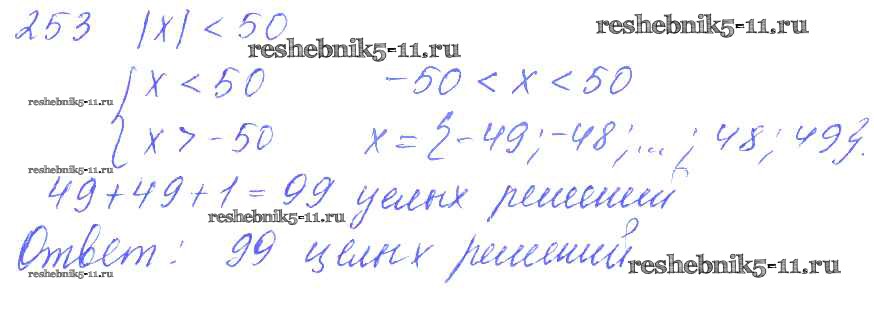 253 |x| < 50
reshebnik5-11.ru reshebnik5-11.ru
{ x < 50 -50 < x < 50
reshebnik5-11.ru
x > -50 x = {-49; -48; ...; 48; 49}.
reshebnik5-11.ru
49 + 49 + 1 = 99 целых решений
reshebnik5-11.ru
Ответ: 99 целых решений
reshebnik5-11.ru reshebnik5-11.ru